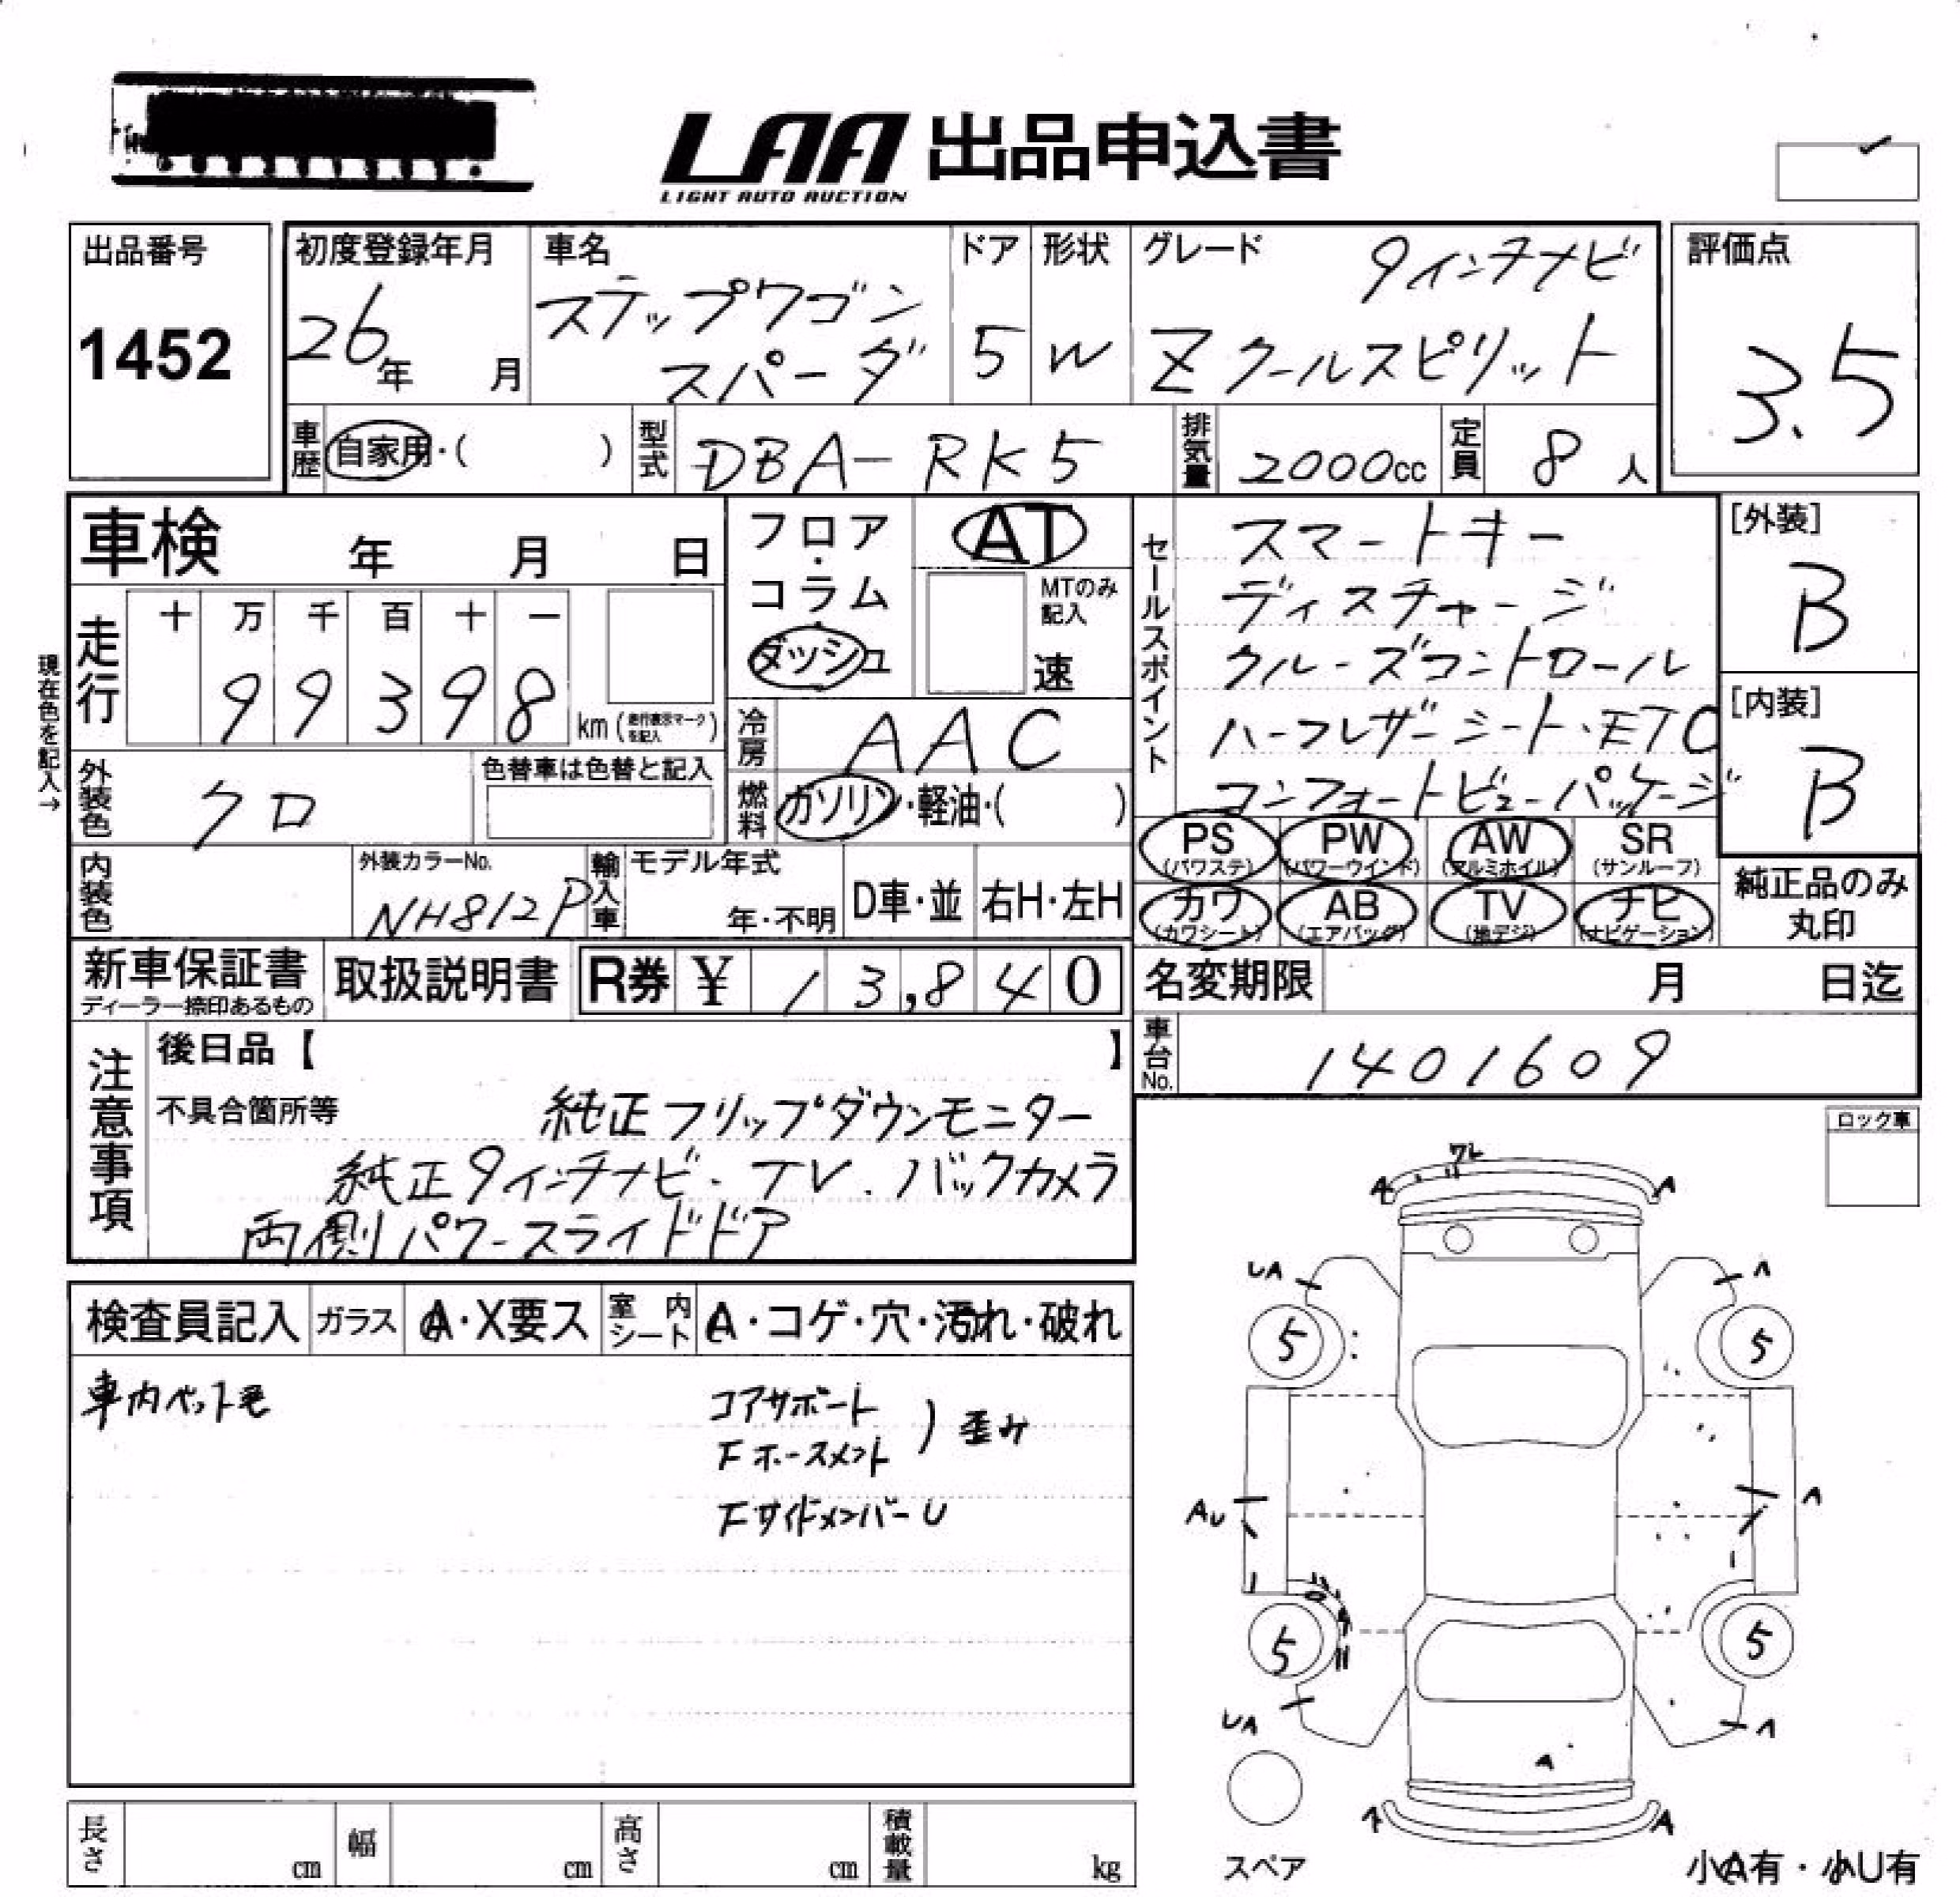 LAA 出品申込書
LIGHT AUTO AUCTION
出品番号
1452
初度登録年月
26年 月
車名
ステップワゴン
スパーダ
ドア
5
形状
W
グレード
9インチナビ
Z クールスピリット
評価点
3.5
車歴 自家用・( )
型式 DBA-RK5
排気量 2000cc
定員 8人
車検 年 月 日
走行
十 万 千 百 十 一
9 9 3 9 8
km(走行表示マークを記入)
現在色を記入→
フロア・コラム・ダッシュ
AT
MTのみ記入
速
冷房 AAC
燃料 ガソリン・軽油・( )
外装色 クロ
色替車は色替と記入
内装色
外装カラーNo.
NH812P
輸入車
モデル年式
年・不明
D車・並
右H・左H
セールスポイント
スマートキー
ディスチャージ
クルーズコントロール
ハーフレザーシート・ETC
コンフォートビューパッケージ
[外装]
B
[内装]
B
PS (パワステ)
PW (パワーウインド)
AW (アルミホイル)
SR (サンルーフ)
カワ (カワシート)
AB (エアバッグ)
TV (地デジ)
ナビ (ナビゲーション)
純正品のみ
丸印
新車保証書
ディーラー捺印あるもの
取扱説明書
R券 ¥ 13,840
名変期限 月 日迄
車台No. 1401609
注意事項
後日品【 】
不具合箇所等
純正フリップダウンモニター
純正9インチナビ・TV・バックカメラ
両側パワースライドドア
ロック車
検査員記入
ガラス A・X要ス
室内シート A・コゲ・穴・汚れ・破れ
車内ペット毛
コアサポート
Fホースメント ) 歪み
FサイドメンバーU
ワレ
A A
UA A
5 5
AU A
5 5
UA A
A
A A
スペア
小A有・小U有
長さ cm
幅 cm
高さ cm
積載量 kg